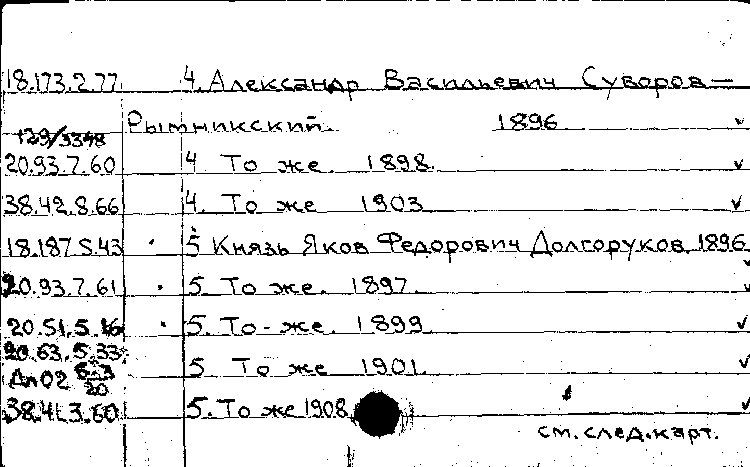 18.173.2.77 4. Александр Васильевич Суворов—
Рымникский. 1896
129/3348
20.93.7.60 4 То же. 1898.
38.42.8.66 4. То же 1903
18.187.5.43 5 Князь Яков Федорович Долгоруков. 1896
20.93.7.61 5. То же. 1897.
20.51.5.16 5. То-же. 1899
20.63.5.33
5 То же 1901.
Дп02
38.41.3.60 5. То же 1908
см. след. карт.